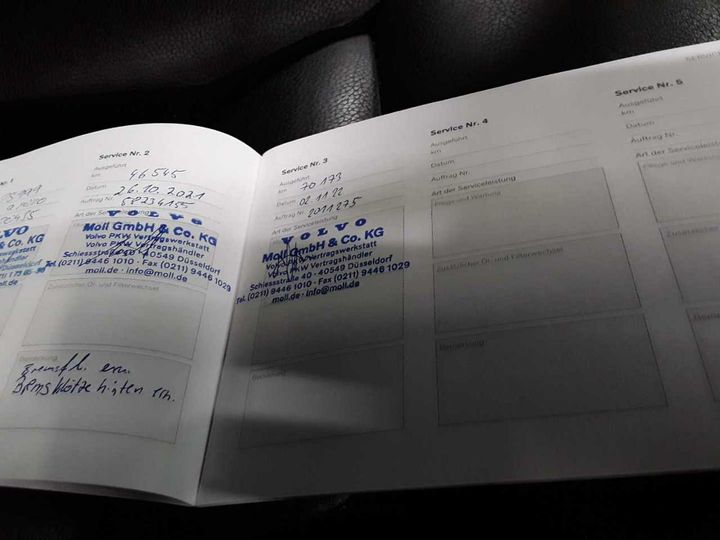 Service Nr. 2
Ausgeführt
km 46545
Datum 26.10.2021
Auftrag Nr. 58234155
Art der Serviceleistung
VOLVO
Moll GmbH & Co. KG
Volvo PKW Vertragswerkstatt
Volvo PKW Vertragshändler
Schiessstraße 40 · 40549 Düsseldorf
Tel. (0211) 9446 1010 · Fax (0211) 9446 1029
moll.de · info@moll.de
Zusätzlicher Öl- und Filterwechsel
Bemerkung
Bremsfl. ern.
Bremsklötze hinten ern.
Service Nr. 3
Ausgeführt
km 70173
Datum 02.11.22
Auftrag Nr. 2011275
Art der Serviceleistung
VOLVO
Moll GmbH & Co. KG
Volvo PKW Vertragswerkstatt
Volvo PKW Vertragshändler
Schiessstraße 40 · 40549 Düsseldorf
Tel. (0211) 9446 1010 · Fax (0211) 9446 1029
moll.de · info@moll.de
Bemerkung
Service Nr. 4
Ausgeführt
km
Datum
Auftrag Nr.
Art der Serviceleistung
Pflege und Wartung
Zusätzlicher Öl- und Filterwechsel
Bemerkung
Service Nr. 5
Ausgeführt
km
Datum
Auftrag Nr.
Art der Serviceleistung
Pflege und Wartung
Zusätzlicher
Bemerkung